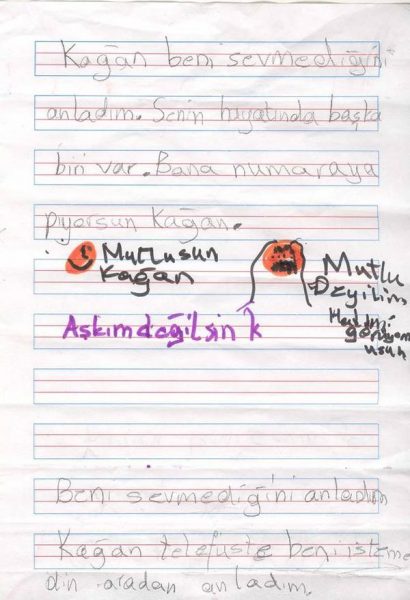 Kağan beni sevmediğini
anladım. Senin hayatında başka
biri var. Bana numaraya
pıyorsun Kağan.
Mutlusun
Kağan
Mutlu
Deyilim
Aşkım değilsin k
Beni sevmediğini anladım
Kağan telefuste beni isteme
din aradan anladım.